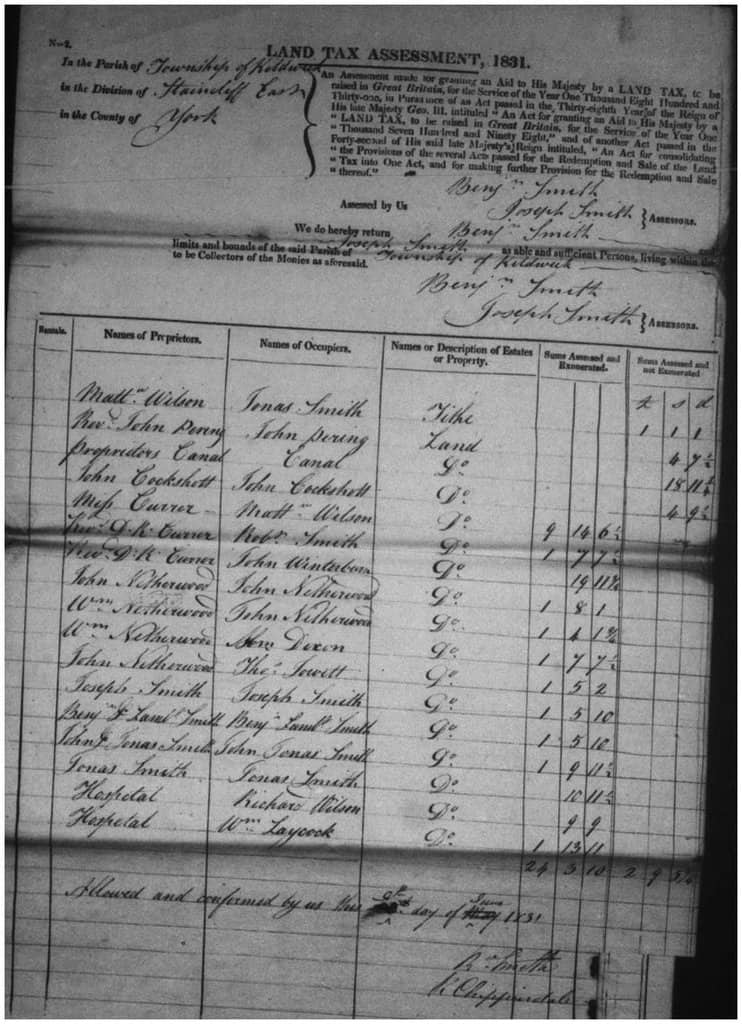 N—2.
LAND TAX ASSESSMENT, 1831.
In the Parish of Township of Kildwick
in the Division of Staincliff East
in the County of York
An Assessment made for granting an Aid to His Majesty by a LAND TAX, to be
raised in Great Britain, for the Service of the Year One Thousand Eight Hundred and
Thirty-one, in Pursuance of an Act passed in the Thirty-eighth Year of the Reign of
His late Majesty Geo. III. intituled "An Act for granting an Aid to His Majesty by a
"LAND TAX, to be raised in Great Britain, for the Service of the Year One
"Thousand Seven Hundred and Ninety Eight," and of another Act passed in the
Forty-second of His said late Majesty's Reign intituled, "An Act for consolidating
"the Provisions of the several Acts passed for the Redemption and Sale of the Land
"Tax into One Act, and for making further Provision for the Redemption and Sale
"thereof."
Assessed by Us
Benjn Smith
Joseph Smith } ASSESSORS.
We do hereby return Benjn Smith
Joseph Smith as able and sufficient Persons, living within the
limits and bounds of the said Parish of Township of Kildwick
to be Collectors of the Monies as aforesaid.
Benjn Smith
Joseph Smith } ASSESSORS.
Rentals. Names of Proprietors. Names of Occupiers. Names or Description of Estates or Property. Sums Assessed and Exonerated. Sums Assessed and not Exonerated
£ s d
Mattw Wilson Jonas Smith Tithe 1 1 1
Revd John Pering John Pering Land 4 7½
Proprietors Canal Canal Do 18 11½
John Cockshott John Cockshott Do 4 9½
Miss Currer Mattw Wilson Do 9 14 6½
Revd D. R. Currer Robt Smith Do 1 7 7½
Revd D. R. Currer John Winterburn Do 19 11¾
John Netherwood John Netherwood Do 1 8 1
Wm Netherwood John Netherwood Do 1 4 1¾
Wm Netherwood Dixon Do 1 7 7½
John Netherwood Thos Jowett Do 1 5 2
Joseph Smith Joseph Smith Do 1 5 10
Benjn & Lambt Smith Benjn Lambt Smith Do 1 5 10
John & Jonas Smith John Jonas Smith Do 1 9 11½
Jonas Smith Jonas Smith Do 10 11½
Hospetal Richard Wilson Do 9 9
Hospetal Wm Laycock Do 1 13 11
24 3 10 2 9 5¼
Allowed and confirmed by us this day of June 1831
Smith
Chippindale